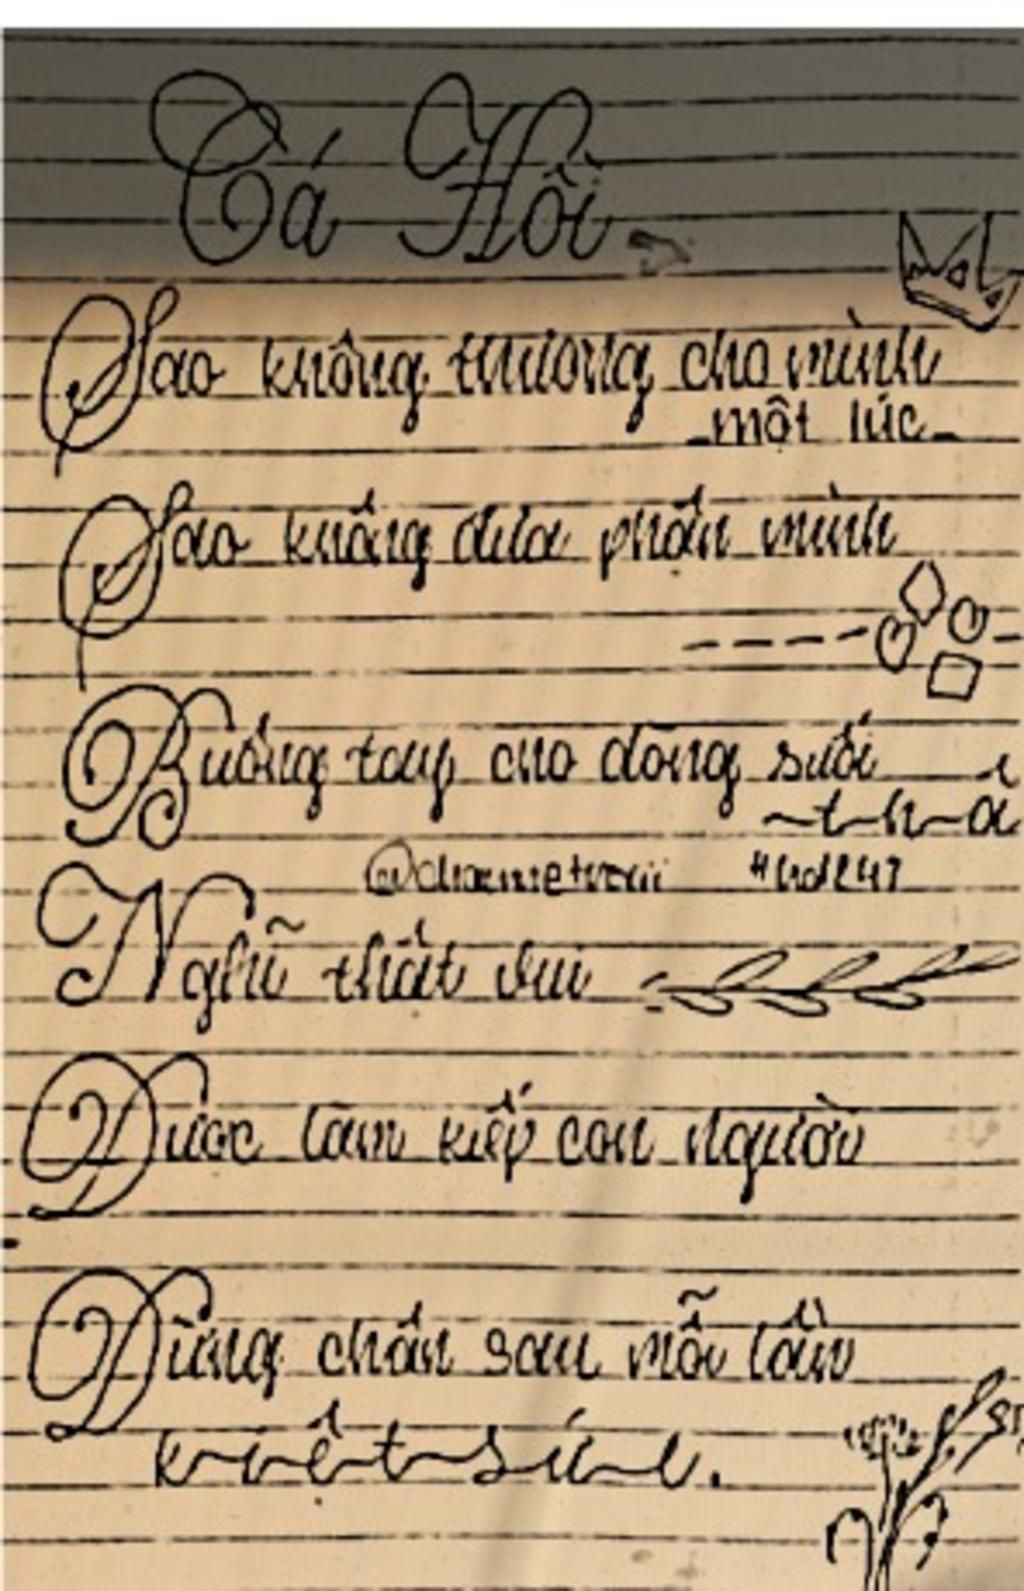 Cá Hồi
Sao không thương cho mình
một lúc
Sao không đưa phần mình
Buông tay cho dòng suối
thả
Nghĩ thật vui
Được làm kiếp con người
Dừng chân sau mỗi lần
kiệt sức.